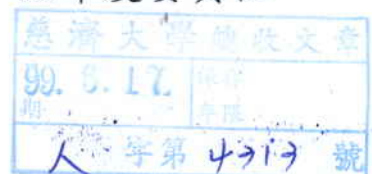 慈濟大學總收文章
99. 8. 17.
保存
期
年限
人 字第 4313 號